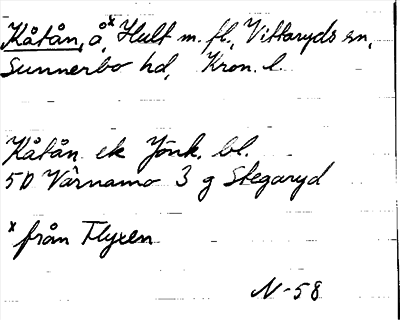 Kåtån, å,ˣ Hult m. fl., Vittaryds sn,
Sunnerbo hd, Kron. l.
Kåtån ek Jönk. bl.
5D Värnamo 3 g Stegaryd
ˣ från Flyxen
N-58